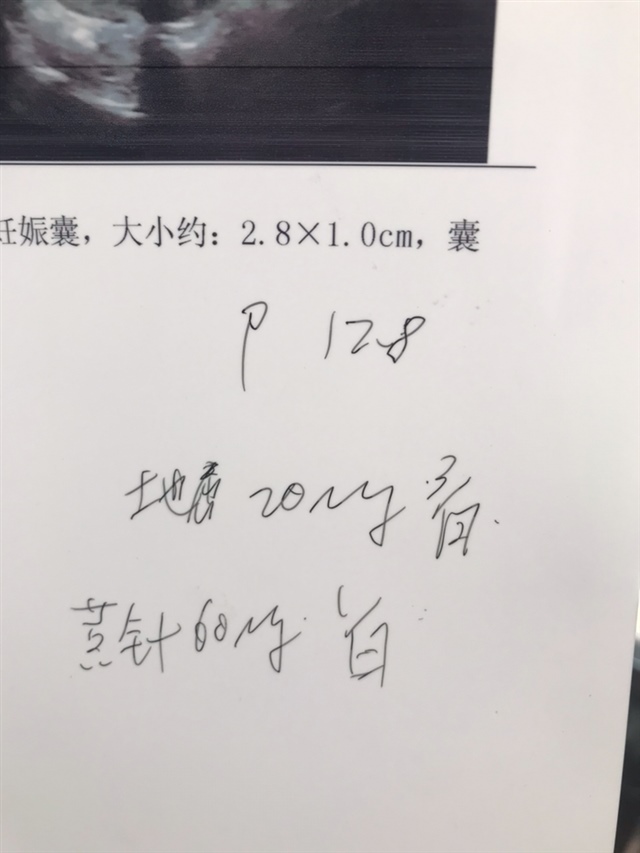 妊娠囊，大小约：2.8×1.0cm，囊
P 12.8
地 20mg 3/日.
针 60mg. 1/日